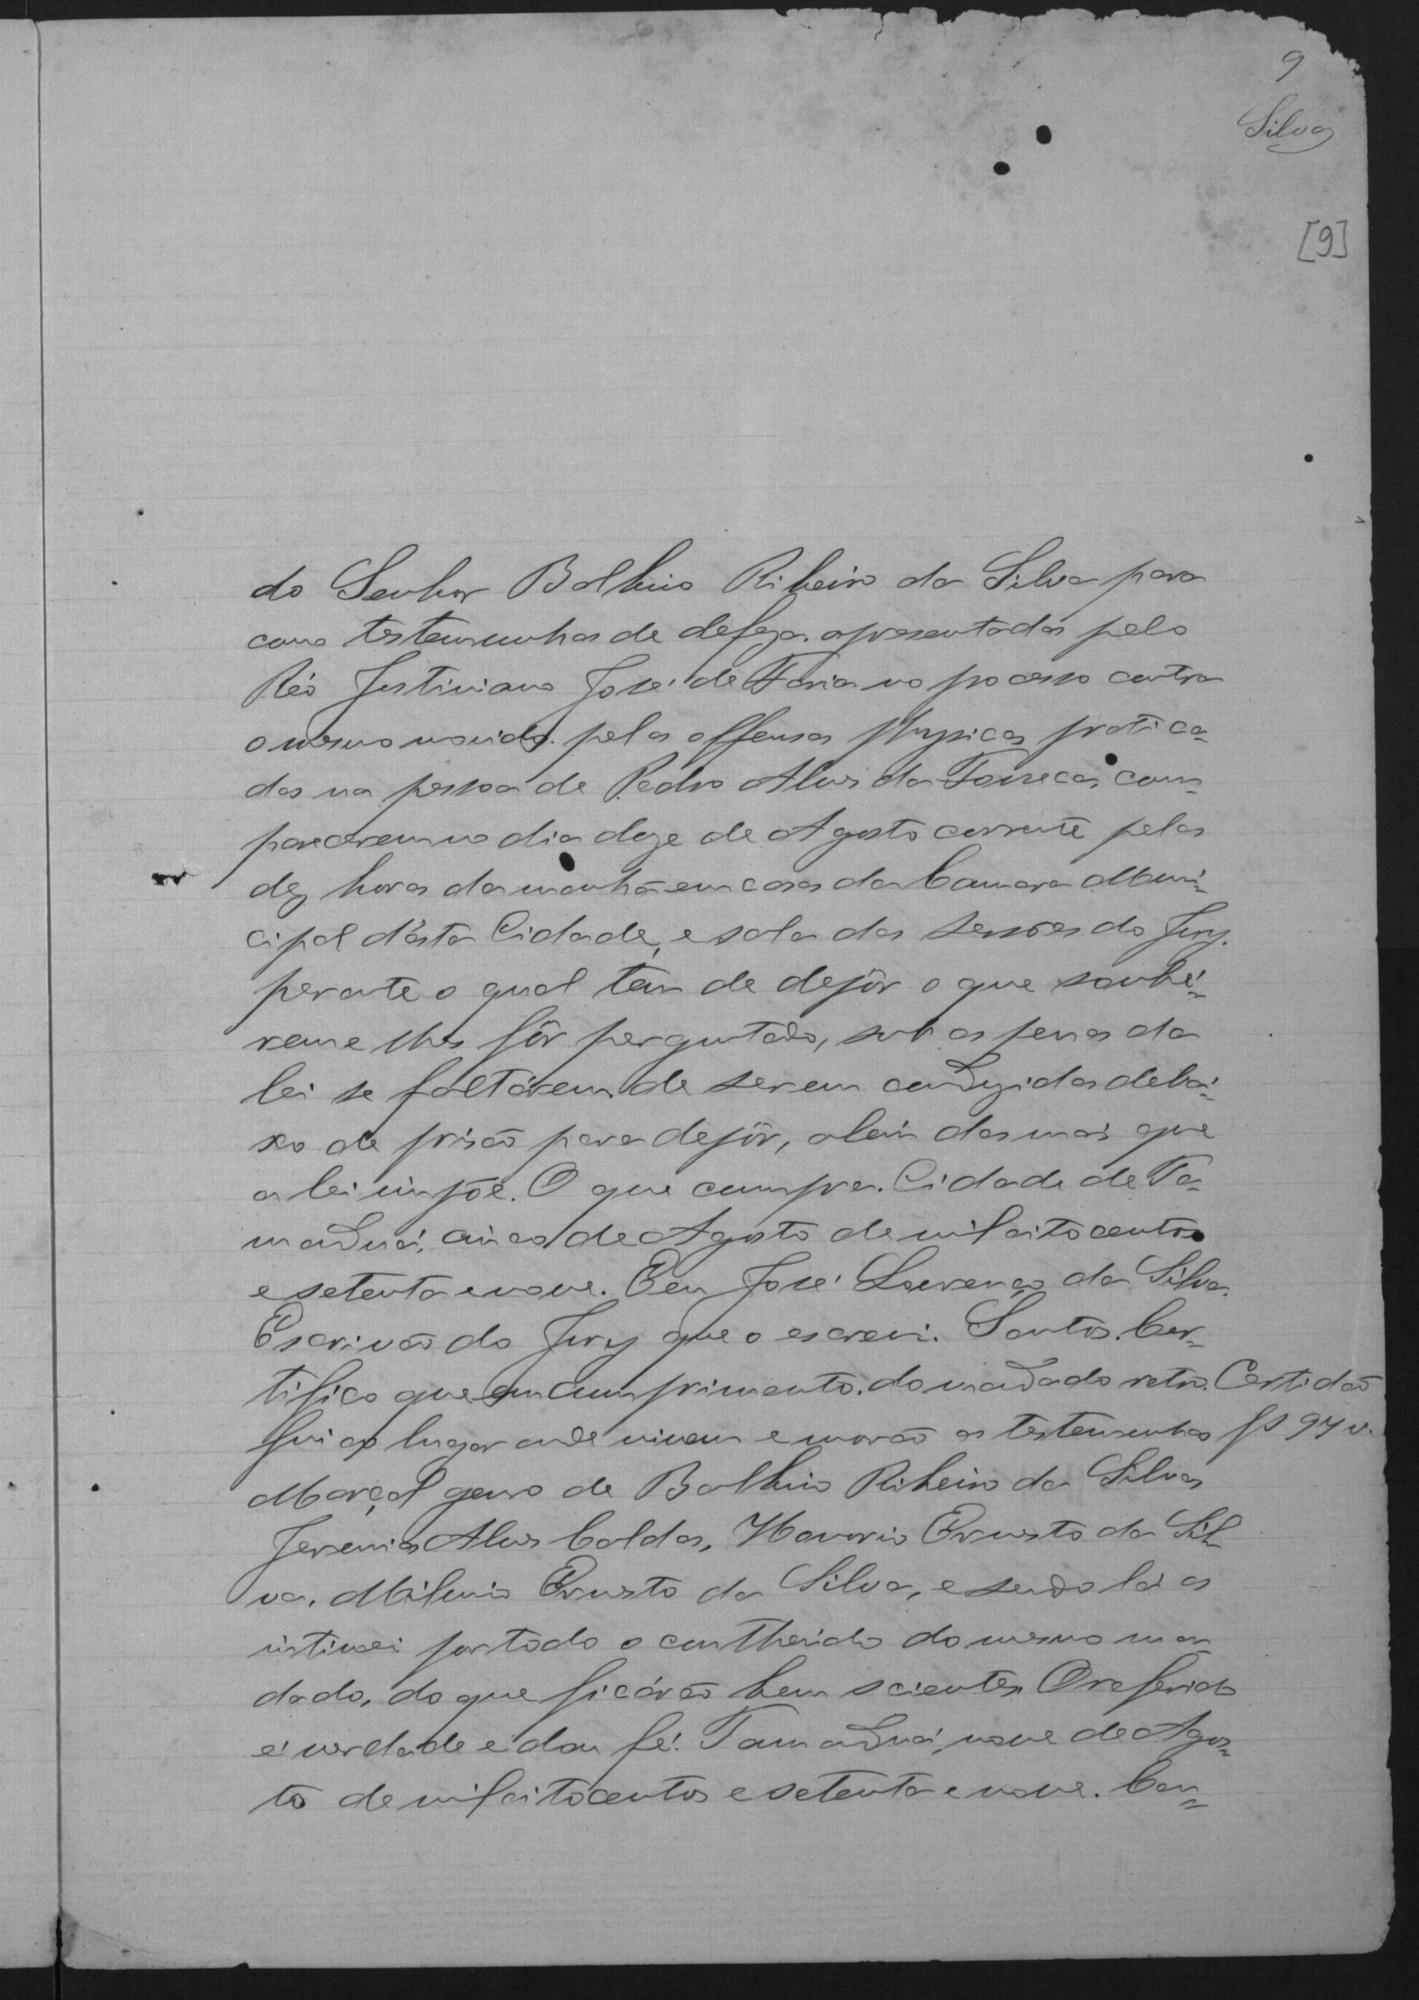 9
Silva
[9]
do Senhor Balbino Ribeiro da Silva para
como testemunhas de defeza apresentadas pelo
Réo Justiniano José de Faria no processo contra
o mesmo movido pelas offensas physicas pratica-
das na pessoa de Pedro Alves da Fonseca, com-
parecerem no dia doze de Agosto corrente pelas
dez horas da manhã em casa da Camara Muni-
cipal d'ésta Cidade, e sala das sessões do Jury,
perante o qual tem de depôr o que soubé-
rem e lhes fôr perguntado, sob as penas da
lei se faltárem, de serem conduzidas debai-
xo de prisão para depôr, alem das mais que
a lei impõe. O que cumpra. Cidade de Ta-
manduá, cinco de Agosto de mil oitocentos
e setenta e nove. Eu José Lourenço da Silva
Escrivão do Jury que o escrevi. Santos. Cer-
tifico que em cumprimento do mandado retro
Certidão
fui ao lugar onde vivem e morão as testemunhas
fs 97 v.
Marçal genro de Balbino Ribeiro da Silva
Jeremias Alves Caldas, Honorio Ernesto da Sil-
va, Ernesto da Silva, e sendo lá as
intimei por todo o conthendo do mesmo man-
dado, do que ficárão bem scientes. O referido
é verdade e dou fé. Tamanduá, nove de Agos-
to de mil oitocentos e setenta e nove. Can-